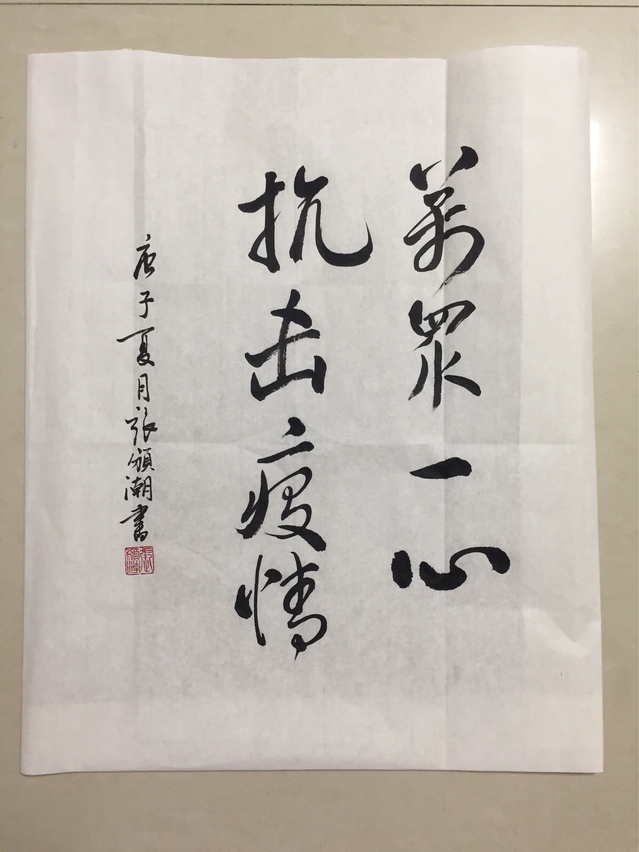 萬眾一心
抗击疫情
庚子夏月張頒潮書